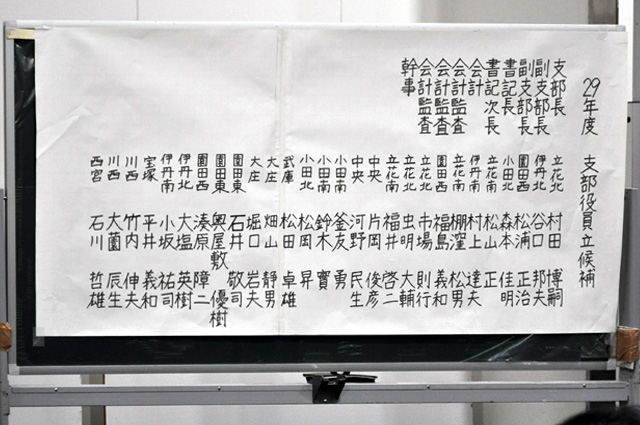 29年度 支部役員立候補
支部長 立花北 村田 博嗣
副支部長 伊丹北 谷口 邦夫
副支部長 園田西 松浦 正治
書記長 小田北 森本 佳明
書記次長 立花南 松山 正
会計 伊丹南 村上 達夫
会計監査 立花南 棚窪 松男
会計監査 園田南 福島 義和
会計監査 立花北 市場 則行
幹事 立花北 虫明 大輔
立花南 福井 啓二
中央 片岡 俊彦
中央 河野 民生
小田南 釜友 勇
小田南 鈴木 實
小田北 松岡 昇
武庫 松田 卓雄
大庄 畑山 静男
大庄 堀口 岩夫
園田東 石井 敬司
園田東 奥屋敷 優樹
園田西 湊原 障二
伊丹北 大塩 英樹
伊丹北 小坂 祐司
宝塚 平井 義和
川西 竹内 伸夫
川西 大薗 辰生
西宮 石川 哲雄